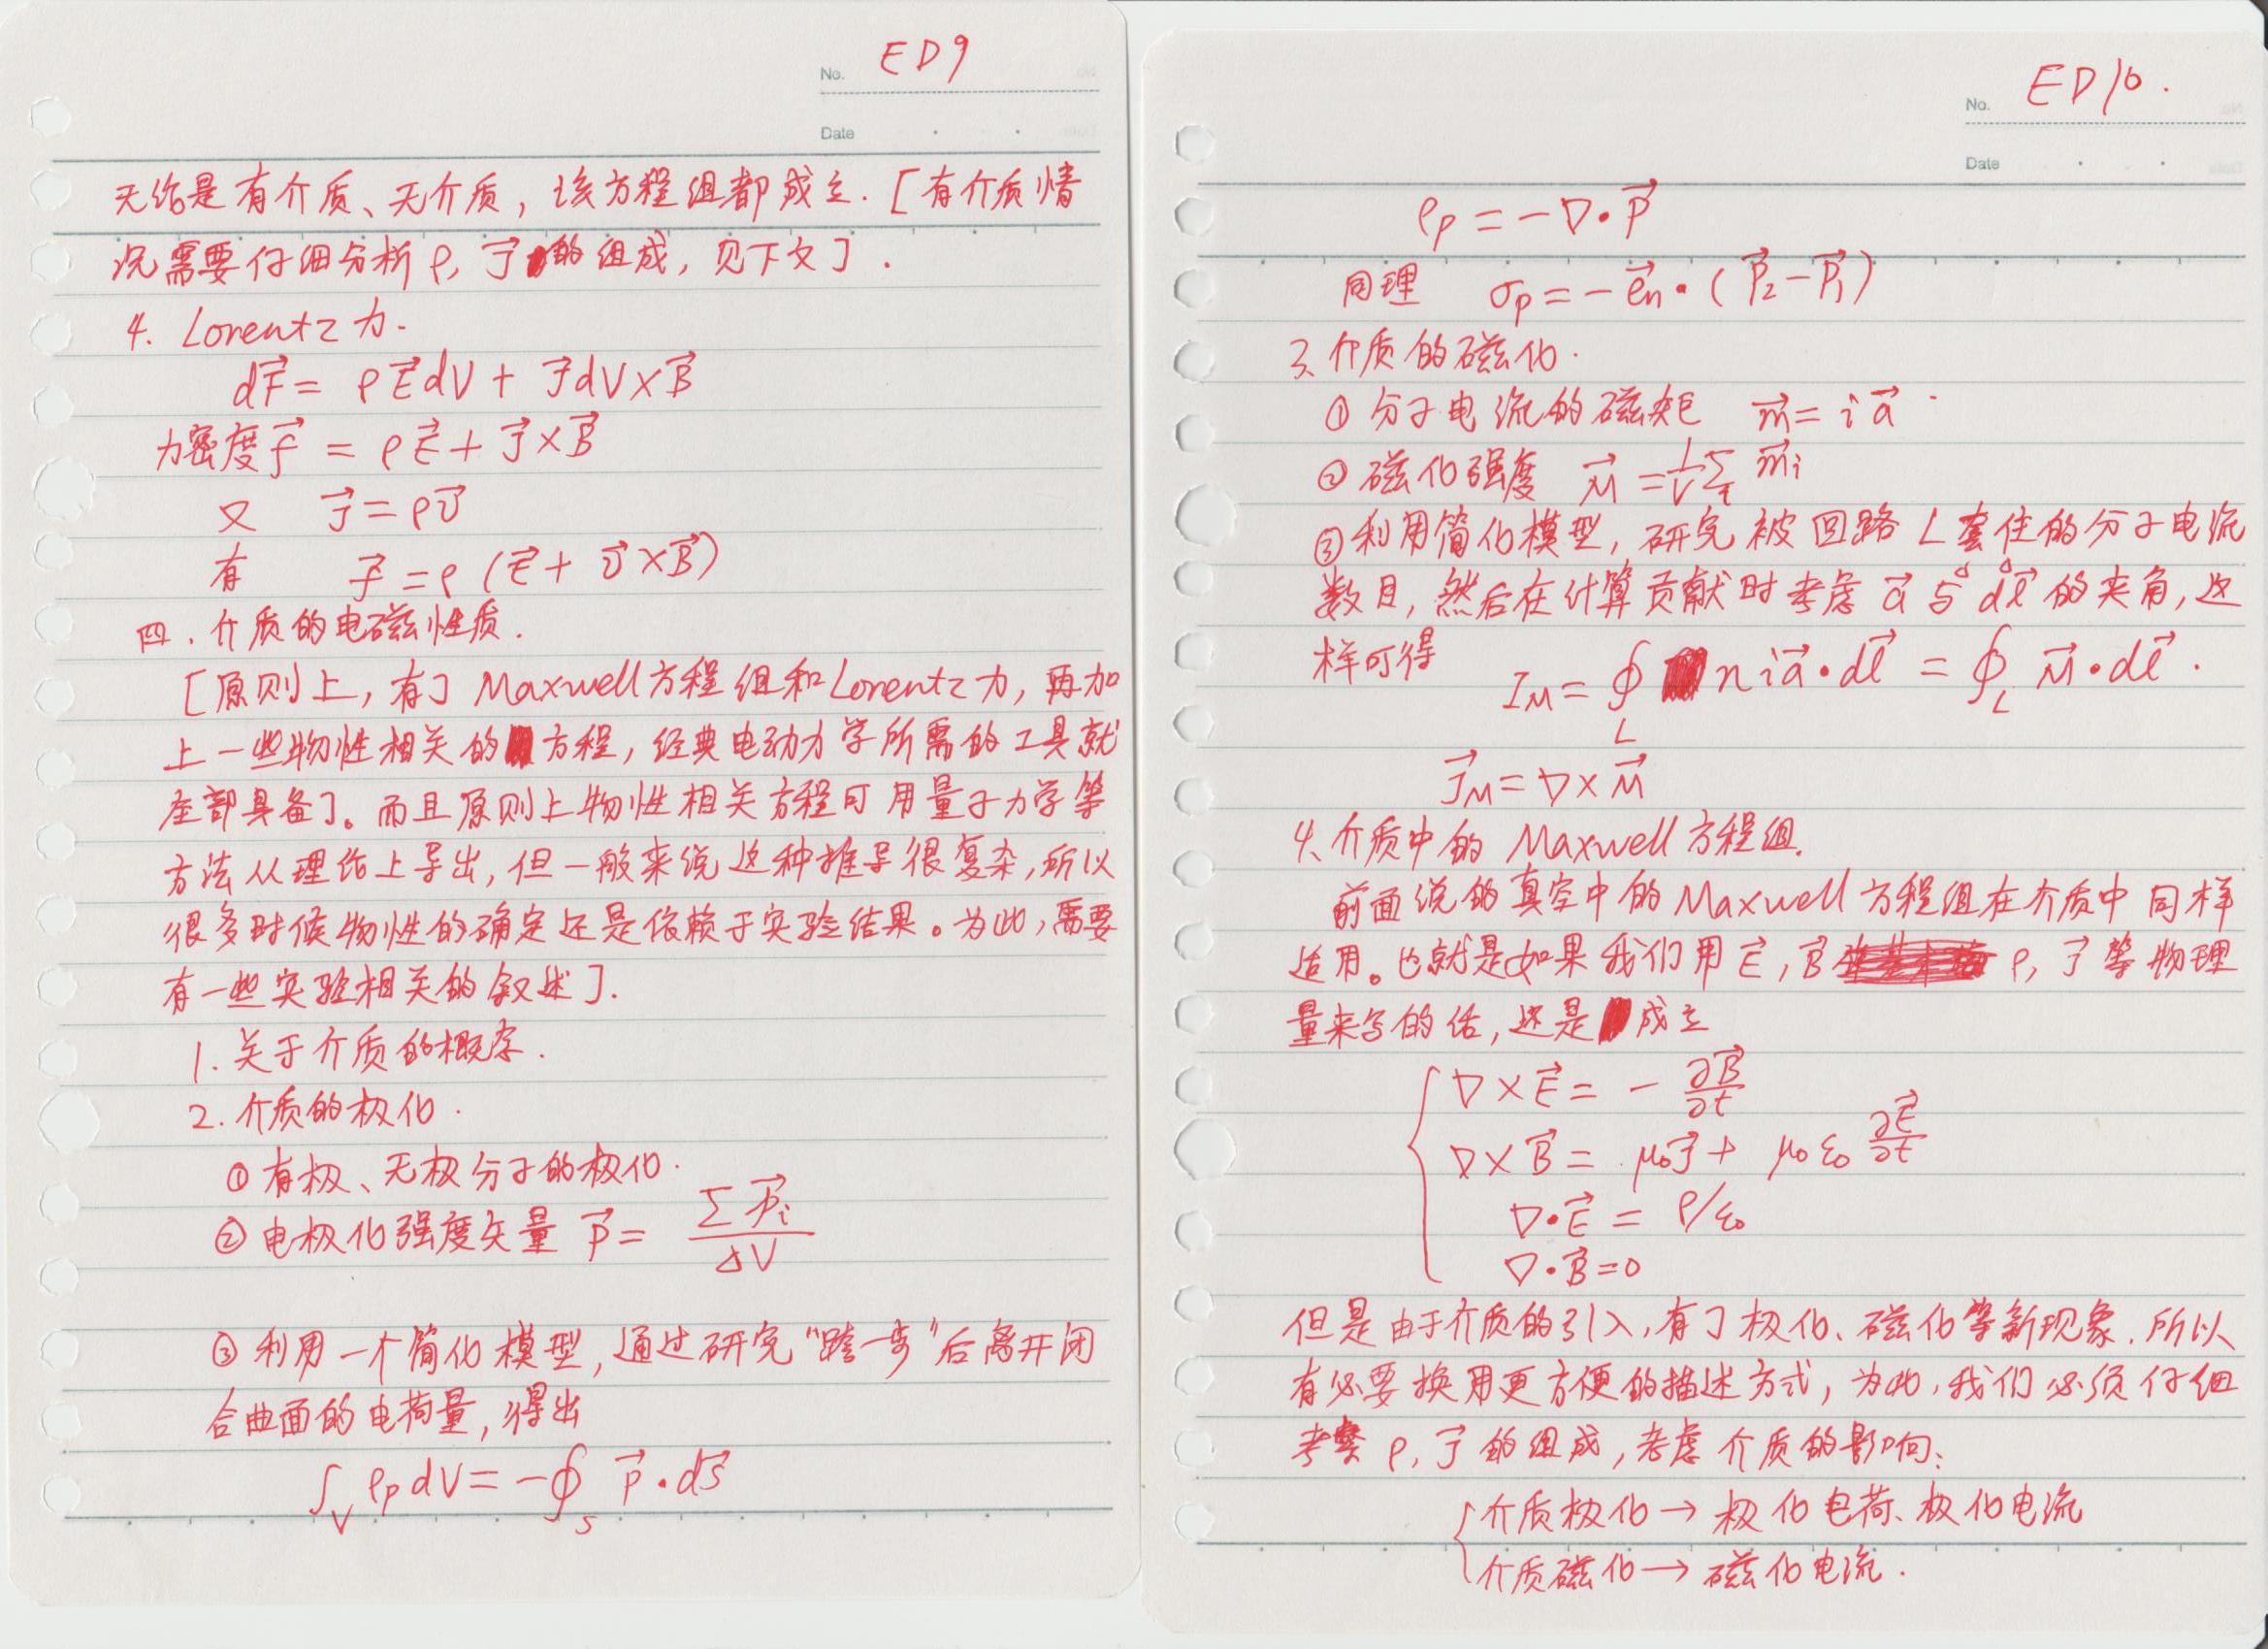 No. ED9
Date
无论是有介质、无介质，该方程组都成立.［有介质情
况需要仔细分析 ρ, J⃗ 的组成，见下文］.
4. Lorentz 力.
dF⃗ = ρE⃗dV + J⃗dV×B⃗
力密度 f⃗ = ρE⃗ + J⃗×B⃗
又 J⃗ = ρv⃗
有 f⃗ = ρ (E⃗ + v⃗×B⃗)
四. 介质的电磁性质.
［原则上，有了 Maxwell 方程组和 Lorentz 力，再加
上一些物性相关的方程，经典电动力学所需的工具就
全部具备了。而且原则上物性相关方程可用量子力学等
方法从理论上导出，但一般来说这种推导很复杂，所以
很多时候物性的确定还是依赖于实验结果。为此，需要
有一些实验相关的叙述］.
1. 关于介质的概念.
2. 介质的极化.
① 有极、无极分子的极化.
② 电极化强度矢量 P⃗ = Σ p⃗ᵢ / ΔV
③ 利用一个简化模型，通过研究“跨一步”后离开闭
合曲面的电荷量，得出
∫_V ρ_P dV = −∮_S P⃗·dS⃗
No. ED10.
Date
ρ_P = −∇·P⃗
同理 σ_P = −e⃗_n·(P⃗₂−P⃗₁)
3、介质的磁化.
① 分子电流的磁矩 m⃗ = i a⃗.
② 磁化强度 M⃗ = 1/V Σ_i m⃗ᵢ
③ 利用简化模型，研究被回路 L 套住的分子电流
数目，然后在计算贡献时考虑 a⃗ 与 dl⃗ 的夹角，这
样可得 I_M = ∮_L n i a⃗·dl⃗ = ∮_L M⃗·dl⃗.
J⃗_M = ∇×M⃗
4、介质中的 Maxwell 方程组.
前面说的真空中的 Maxwell 方程组在介质中同样
适用。也就是如果我们用 E⃗, B⃗ ρ, J⃗ 等物理
量来写的话，还是成立
∇×E⃗ = − ∂B⃗/∂t
∇×B⃗ = μ₀J⃗ + μ₀ε₀ ∂E⃗/∂t
∇·E⃗ = ρ/ε₀
∇·B⃗ = 0
但是由于介质的引入，有了极化、磁化等新现象. 所以
有必要换用更方便的描述方式，为此，我们必须仔细
考察 ρ, J⃗ 的组成，考虑介质的影响：
介质极化 → 极化电荷、极化电流
介质磁化 → 磁化电流.